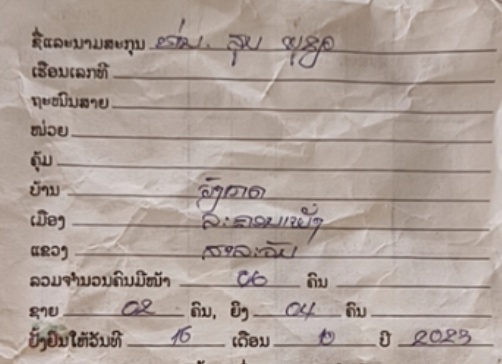 ຊື່ແລະນາມສະກຸນ ທ່ານ. ສຸບ
ເຮືອນເລກທີ
ຖະໜົນສາຍ
ໜ່ວຍ
ຄຸ້ມ
ບ້ານ
ເມືອງ ລະຄອນເພັງ
ແຂວງ ສາລະວັນ
ລວມຈຳນວນຄົນມີໜ້າ 06 ຄົນ
ຊາຍ 02 ຄົນ, ຍິງ 04 ຄົນ
ຢັ້ງຢືນໃຫ້ວັນທີ 16 ເດືອນ 10 ປີ 2023